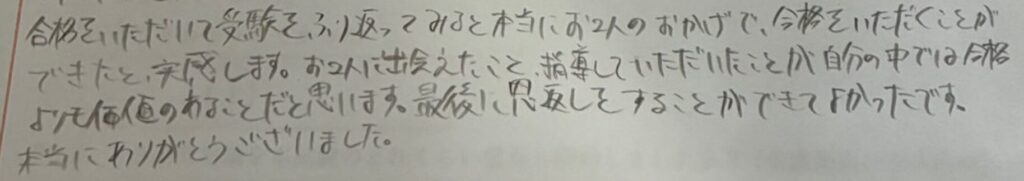 合格をいただいて受験をふり返ってみると本当にお2人のおかげで、合格をいただくことが
できたと、実感します。お2人に出会えたこと、指導していただいたことが自分の中では合格
よりも価値のあることだと思います。最後に恩返しをすることができてよかったです。
本当にありがとうございました。